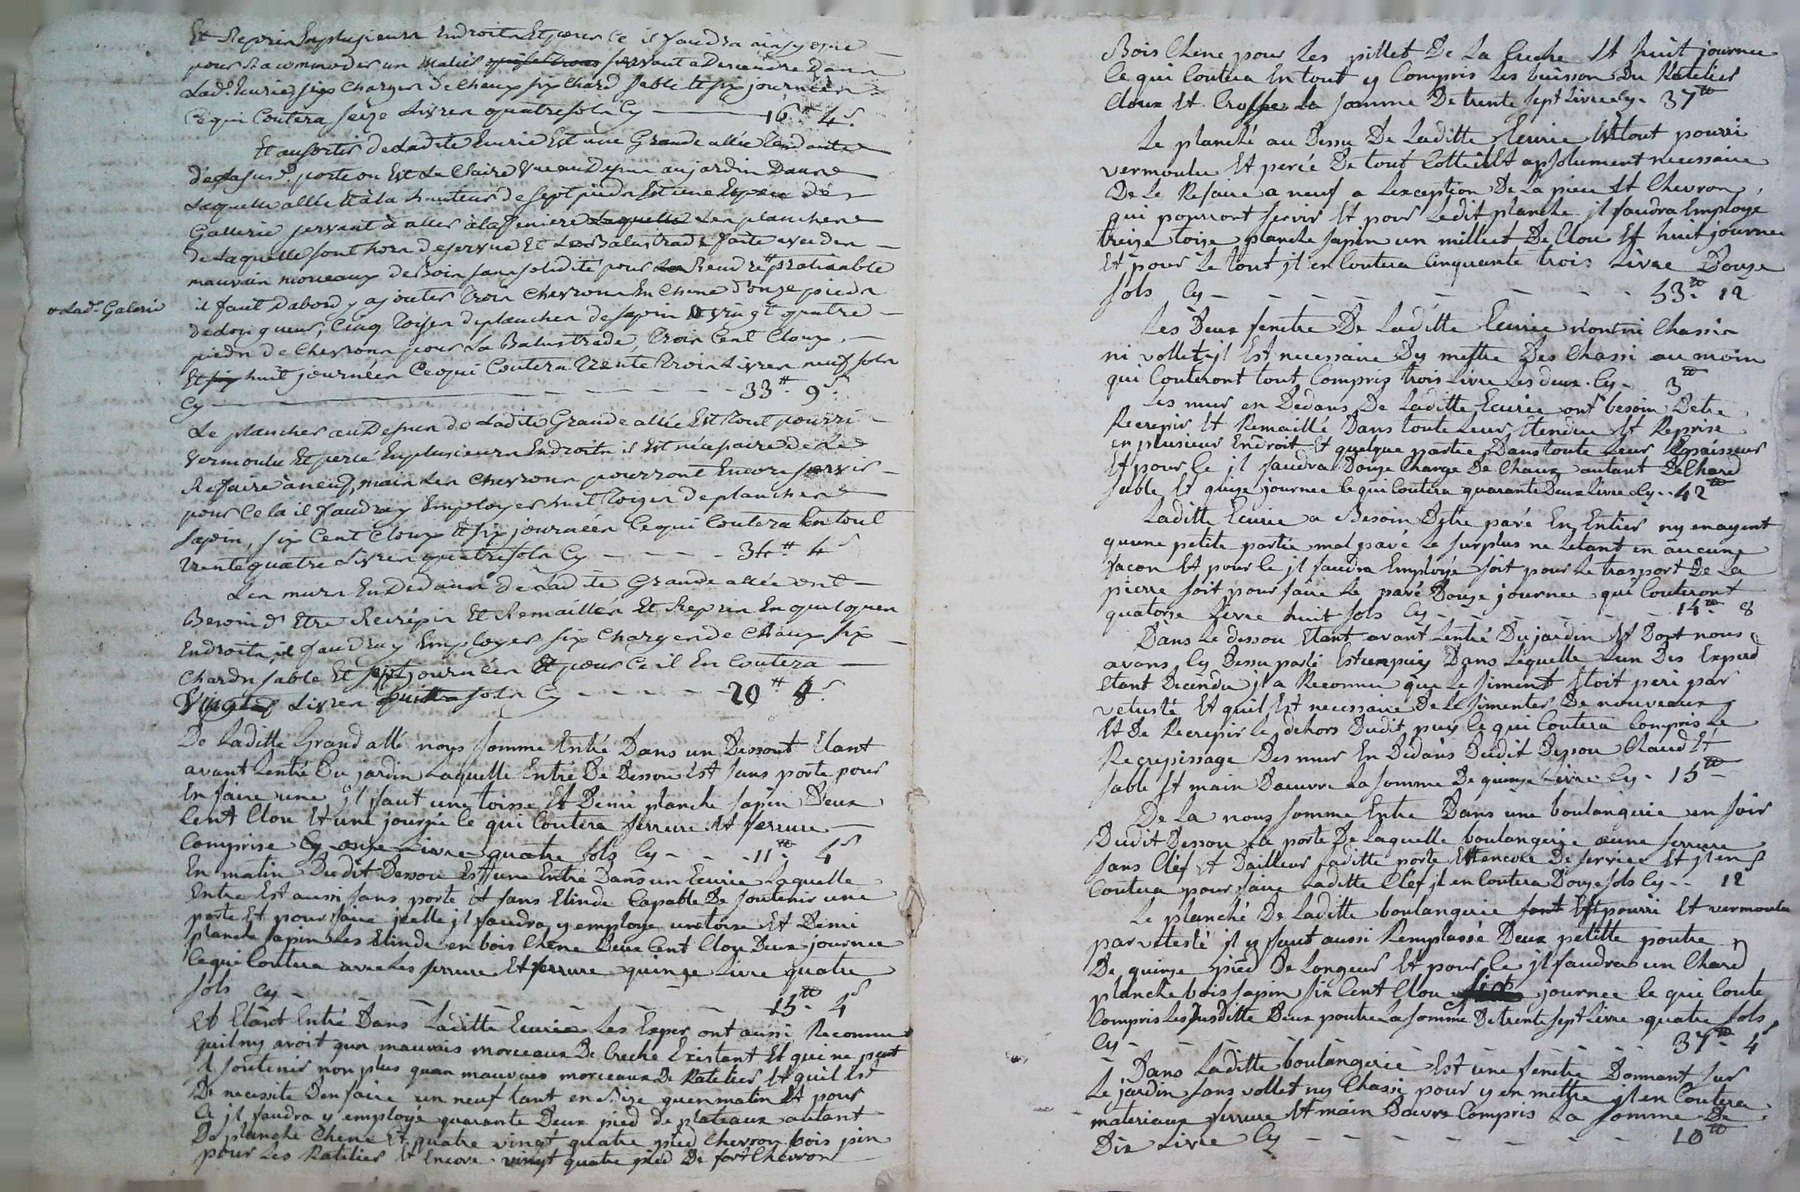 Et Reprins en plusieurs Endroits Et pour ce il faudra ainsy que
pour Racommoder un servant a Descendre Dans
Lad.e Eurie, six Charges de Chaux six Chard sable et six journéer
Ce qui Coutera seize Livres quatre sols Cy 16# 4s
Et au sortir de Ladite Eurie Est une Grande allée tendante
de la susd. porte ou Est La Claire Vue au Dessus au jardin Dans
Laquelle allée Et à la hauteur de sept pieds Est une Espece de
Gallerie servant à aller à la feniere Laquelle Les planchers
de Laquelle sont hors de servue Et Les Balustrade faite avec des
mauvais morceaux de Bois sans solidité pour La Rendre # pratiquable
# Lad.e Galerie
il faut Dabord y ajouter trois Chevrons En Chene d'onze pieds
de Longueur, Cinq toises de planches de sapin Et vingt quatre
pieds de Chevrons pour La Balustrade, trois Cent Cloux,
Et six huit journéer Ce qui Coutera trente trois Livres neuf sols
Cy 33# 9s
Le plancher au Dessus de Ladite Grande allée Est tout pourri
Vermoulu Et percé En plusieurs Endroits il Est nécessaire de Le
Reffaire à neuf, mais Les Chevrons pourront Encore servir
pour Cela il faudra y Employer huit toises de planches
sapin, six Cent Cloux Et six journéer Ce qui Coutera En tout
trente quatre Livres quatre sols Cy 34# 4s
Les murs En Dedans de Ladite Grande allée ont
Besoin d'Etre Recrépis Et Remaillés Et Repris En quelques
Endroits, il faudra y Employer six Charges de Chaux six
Chards sable Et sept journéer Et pour Ce il En Coutera
Vingt Livres sols Cy 20# 8s
De Laditte Grand allé nous somme Entré Dans un Dessout Etant
avant Lentré Du jardin Laquelle Entré De Dessou Est sans porte pour
En faire une il faut une toisse Et Demi planche sapin Deux
Cent Clou Et une journée Ce qui Coutera ferrure Et serrure
Comprise Cy onze Livre quatre sols Cy 11# 4s
En matin Dudit Dessou Est une Entré Dans un Ecurie Laquelle
Entre Est aussi sans porte Et sans Elinde Capable De soutenir une
porte Et pour faire jcelle il faudra y employe une toise Et Demi
planche sapin Les Elinde en bois Chêne Deux Cent Clou Deux journee
Ce qui Coutera avec Les ferrure Et serrure quinze Livre quatre
sols Cy 15# 4s
Et Etant Entré Dans Laditte Ecurie Les Exper ont aussi Reconnut
quil ny avoit qun mauvais morceaux De Creche Existant Et qui ne peut
se soutenir non plus quan mauvais morceaux De Ratelier Et quil est
De necessité Den faire un neuf tant en Bize quen matin Et pour
Ce il faudra y employe quarante Deux pied de plateaux autant
De planche Chene Et quatre vingt quatre pied Chevron bois pin
pour Les Ratilier Et Encore vingt quatre pied De fort Chevron
Bois Chene pour Les pillet De La Creche Et huit journee
Ce qui Coutera En tout y Compris Les buisson Du Ratelier
Cloux Et Crosse La somme De trente sept Livre Cy 37#
Le planché au Dessu De Laditte Ecurie Est tout pourri
vermoulu Et percée De tout Cotté Et apsolument necessaire
De Le Refaire a neuf a Lexception De La piece Et Chevron,
qui pouront servir Et pour Ledit planche il faudra Employe
treize toise planche sapin un milliet De Clou Et huit journee
Et pour Le tout il en Coutera Cinquante trois Livre Douze
sols Cy 53# 12
Les Deux fenetre De Laditte Ecurie nont ni Chassin
ni vollet, il Est necessaire Dy mettre Des Chassi au moin
qui Couteront tout Compris trois Livre Les deux Cy 3#
Les mur en Dedans De Laditte Ecurie ont besoin Detre
Recrepir Et Remaillé Dans toute Leur Etendue Et Reprise
en plusieur Endroit Et quelque partie Dans toute Leur Epaisseur
Et pour Ce il faudra Douze Charge De Chaux autant De Chard
sable Et quize journee Ce qui Coutera quarante Deux Livre Cy 42#
Laditte Ecurie a Besoin Detre pavé En Entier ny enayent
qu'une petite partie mal pavé Le surplus ne Letant en aucune
facon Et pour Ce il faudra Employe soit pour Le trasport De La
pierre soit pour faire Le pavé Douze journee qui Couteront
quatorze Livre huit sols Cy 14# 8
Dans Le dessou Etant avant Lentré Du jardin Et Dont nous
avons Cy Dessu parlé Est un puis Dans Lequelle Lun Des Experd
Etant Decendu il a Reconnu que Le siment Etoit peri par
vetusté Et quil Est necessaire De Le simenter De nouveaux
Et De Recrepir Les dehors Dudit puis Ce qui Coutera Compris Le
Recrepissage Des mur En Dedans Dudit Dessou Chaud Et
sable Et main Doeuvre La somme De quinze Livre Cy 15#
De La nous somme Entre Dans une boulangerie en soir
Dudit Dessou La porte De Laquelle boulangerie a une serrure
sans Clef Et Dailleur Laditte porte Et encore De service Et il en
Coutera pour faire Laditte Clef il en Coutera Douze sols Cy 12s
Le planché De Laditte boulangerie sont Est pourri Et vermoulu
par vetesté il y faut aussi Remplassé Deux petitte poutre
De quinze pied De Longeur Et pour Ce il faudra un Chard
planche bois sapin six Cent Clou journee Ce qui Coute
Compris Les susditte Deux poutre La somme De trente sept Livre quatre sols
Cy 37# 4s
Dans Laditte boulangerie Est une fenetre Donnant sur
Le jardin sans vollet ny Chassi, pour y en mettre il en Coutera
materiaux ferrure Et main Daeuvre Compris La somme De
Dix Livre Cy 10#